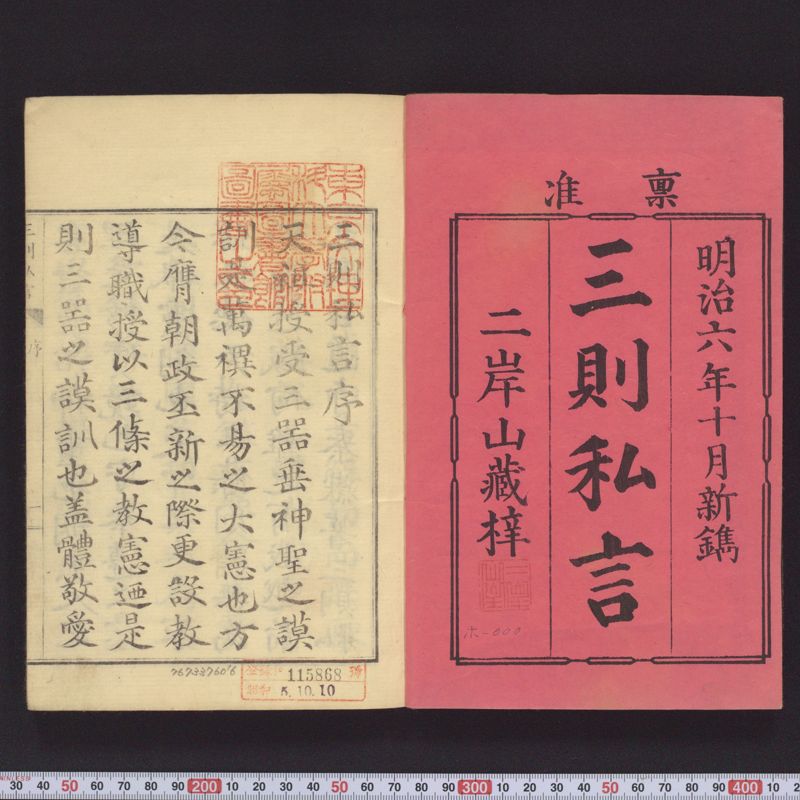 稟准
明治六年十月新鐫
三則私言
二岸山藏梓
ホ-000
三則私言序
天祖授受三器垂神聖之謨
訓是萬禩不易之大憲也方
今膺朝政丕新之際更設教
導職授以三條之教憲迺是
則三器之謨訓也蓋體敬愛
三則私言
序
115868
5.10.10
30 40 50 60 70 80 90 200 10 20 30 40 50 60 70 80 90 300 10 20 30 40 50 60 70 80 90 400 10 2